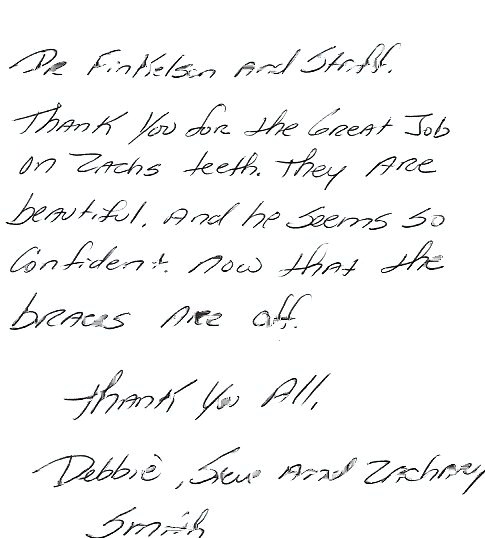 Dr Finkelson and Staff.
Thank You for the Great Job
on Zachs teeth. They Are
beautiful. And he seems so
Confident. Now that the
braces Are off.
Thank You All,
Debbie, Steve And Zachary
Smith